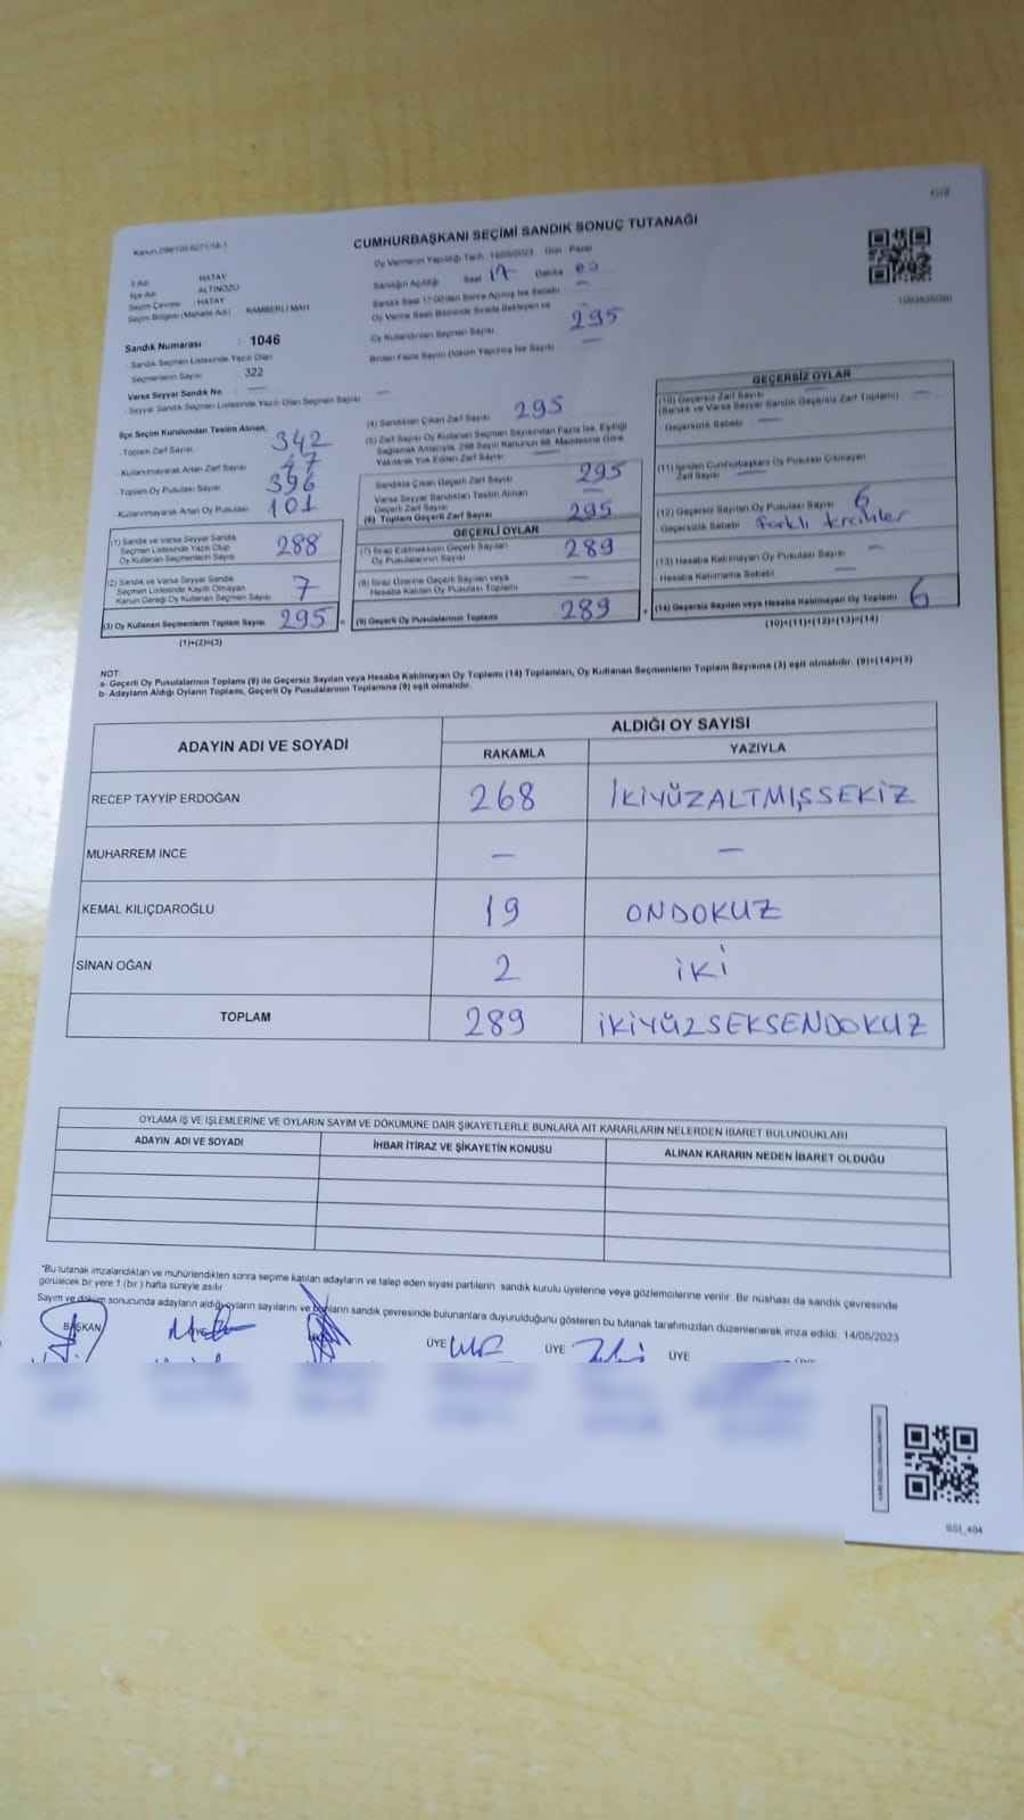 CUMHURBAŞKANI SEÇİMİ SANDIK SONUÇ TUTANAĞI
İl Adı HATAY
İlçe Adı ALTINÖZÜ
Seçim Çevresi : HATAY
Seçim Bölgesi (Mahalle Adı)
Oy Vermenin Yapıldığı Tarih Gün Pazar
Sandığın Açıldığı Saat 17 Dakika 00
Sandık Numarası : 1046
Sandık Seçmen Listesinde Yazılı Olan
Seçmenlerin Sayısı 322
Varsa Seyyar Sandık No —
Seyyar Sandık Seçmen Listesinde Yazılı Olan Seçmen Sayısı —
Oy Kullandırılan Seçmen Sayısı 295
Birden Fazla Sayım Döküm Yapılmış İse Sayısı —
İlçe Seçim Kurulundan Teslim Alınan,
Toplam Zarf Sayısı 342
Kullanılmayarak Artan Zarf Sayısı 47
Toplam Oy Pusulası Sayısı 396
Kullanılmayarak Artan Oy Pusulası 101
(1) Sandık ve Varsa Seyyar Sandık
Seçmen Listesinde Yazılı Olup
Oy Kullanan Seçmenlerin Sayısı 288
(2) Sandık ve Varsa Seyyar Sandık
Seçmen Listesinde Kayıtlı Olmayan
Kanun Gereği Oy Kullanan Seçmen Sayısı 7
(3) Oy Kullanan Seçmenlerin Toplam Sayısı 295
(1)+(2)=(3)
(4) Sandıktan Çıkan Zarf Sayısı 295
(5) Zarf Sayısı Oy Kullanan Seçmen Sayısından Fazla İse, Eşitliği
Sağlamak Amacıyla, 298 Sayılı Kanunun 98. Maddesine Göre
Yakılarak Yok Edilen Zarf Sayısı —
Sandıkta Çıkan Geçerli Zarf Sayısı 295
Varsa Seyyar Sandıktan Teslim Alınan
Geçerli Zarf Sayısı —
(6) Toplam Geçerli Zarf Sayısı 295
GEÇERLİ OYLAR
(7) İtiraz Edilmeksizin Geçerli Sayılan
Oy Pusulalarının Sayısı 289
(8) İtiraz Üzerine Geçerli Sayılan veya
Hesaba Katılan Oy Pusulası Toplamı —
(9) Geçerli Oy Pusulalarının Toplamı 289
GEÇERSİZ OYLAR
(10) Geçersiz Zarf Sayısı —
(Sandık ve Varsa Seyyar Sandık Geçersiz Zarf Toplamı)
Geçersizlik Sebebi —
(11) İçinden Cumhurbaşkanı Oy Pusulası Çıkmayan
Zarf Sayısı —
(12) Geçersiz Sayılan Oy Pusulası Sayısı 6
Geçersizlik Sebebi farklı tercihler
(13) Hesaba Katılmayan Oy Pusulası Sayısı —
Hesaba Katılmama Sebebi —
(14) Geçersiz Sayılan veya Hesaba Katılmayan Oy Toplamı 6
(10)+(11)+(12)+(13)=(14)
NOT:
a- Geçerli Oy Pusulalarının Toplamı (9) ile Geçersiz Sayılan veya Hesaba Katılmayan Oy Toplamı (14) Toplamları, Oy Kullanan Seçmenlerin Toplam Sayısına (3) eşit olmalıdır. (9)+(14)=(3)
b- Adayların Aldığı Oyların Toplamı, Geçerli Oy Pusulalarının Toplamına (9) eşit olmalıdır.
ADAYIN ADI VE SOYADI ALDIĞI OY SAYISI
RAKAMLA YAZIYLA
RECEP TAYYİP ERDOĞAN 268 İKİYÜZALTMIŞSEKİZ
MUHARREM İNCE — —
KEMAL KILIÇDAROĞLU 19 ONDOKUZ
SİNAN OĞAN 2 İKİ
TOPLAM 289 İKİYÜZSEKSENDOKUZ
OYLAMA İŞ VE İŞLEMLERİNE VE OYLARIN SAYIM VE DÖKÜMÜNE DAİR ŞİKAYETLERLE BUNLARA AİT KARARLARIN NELERDEN İBARET BULUNDUKLARI
ADAYIN ADI VE SOYADI İHBAR İTİRAZ VE ŞİKAYETİN KONUSU ALINAN KARARIN NEDEN İBARET OLDUĞU
*Bu tutanak imzalandıktan ve mühürlendikten sonra seçime katılan adayların ve talep eden siyasi partilerin sandık kurulu üyelerine veya gözlemcilerine verilir. Bir nüshası da sandık çevresinde
görülecek bir yere 1 (bir) hafta süreyle asılır.
Sayım ve döküm sonucunda adayların aldığı oyların sayılarını ve bunların sandık çevresinde bulunanlara duyurulduğunu gösteren bu tutanak tarafımızdan düzenlenerek imza edildi. 14/05/2023
BAŞKAN ÜYE ÜYE ÜYE